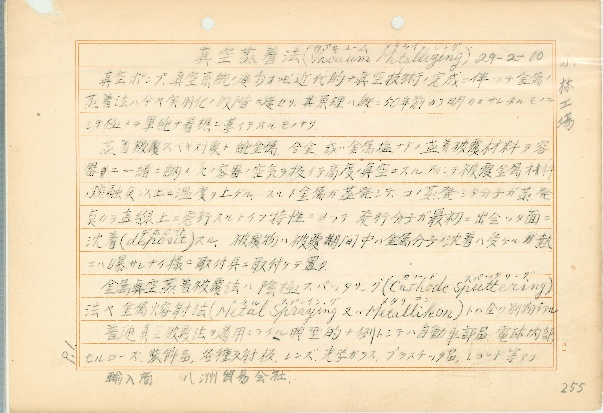 真空蒸着法(Vacuum Metallizing) 29-2-10
小林工場
真空ポンプ、真空系統ノ速力オヨビ近代的ナ真空技術ノ完成ニ伴ッテ金属ノ
蒸着法ハ今ヤ実用化ノ段階ニ達セリ、其原理ハ既ニ
極メテ単純ナ着想ニ基イテヰルモノナリ.
蒸着被覆スベキ対象ト純金属、合金或ハ金属塩ナドノ蒸着被覆材料ヲ容
器中ニ一緒ニ納メ、容器ノ空気ヲ抜イテ高度ノ真空ニスル 被覆金属材料
ノ熔融点以上ニ温度ヲ上ゲル. スルト金属ガ蒸発シテ、コノ蒸発シタ分子ガ蒸発
点カラ直線上ニ飛行スルトイフ特性ニヨッテ 飛行分子ガ最初ニ出会ッタ面ニ
沈着(deposit)スル、被覆物ハ被覆期間中ハ金属分子ノ沈着ハ受ケルガ熱
ニハ曝サレナイ様ニ取付具ニ取付ケテ置ク
金属真空蒸着被覆法ハ陰極スパッタリング(Cathode Sputtering)
法ヤ金属熔射法(Metal Spraying 又ハ Metallikon)トハ全ク別物
普通真空被覆法ヲ適用シテヰル典型的ナ例トシテハ自動車部品、電球内部
セルローズ、装飾品、各種反射板、レンズ、光学ガラス、プラスチック品、レコード等アリ
輸入商 八洲貿易会社.
P.1.
255